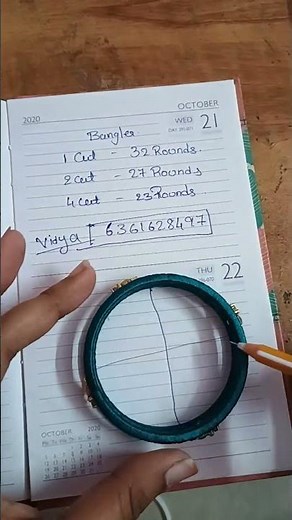 2020
OCTOBER
WED 21
Bangles
1 Cut - 32 Rounds.
2 cut - 27 Rounds
4 cut - 23 Rounds.
Vidya 6361628497
THU 22
OCTOBER 2020